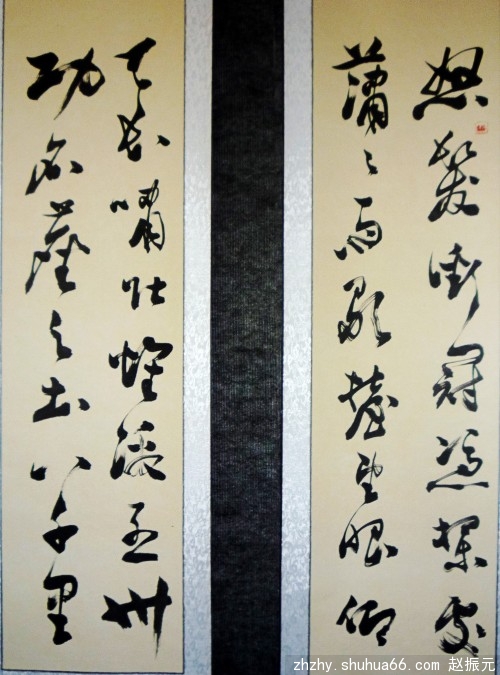 怒髮衝冠憑欄處
瀟々雨歇擡望眼仰
天長嘯壯懷激烈卅
功名塵與土八千里
zhzhy.shuhua66.com 赵振元